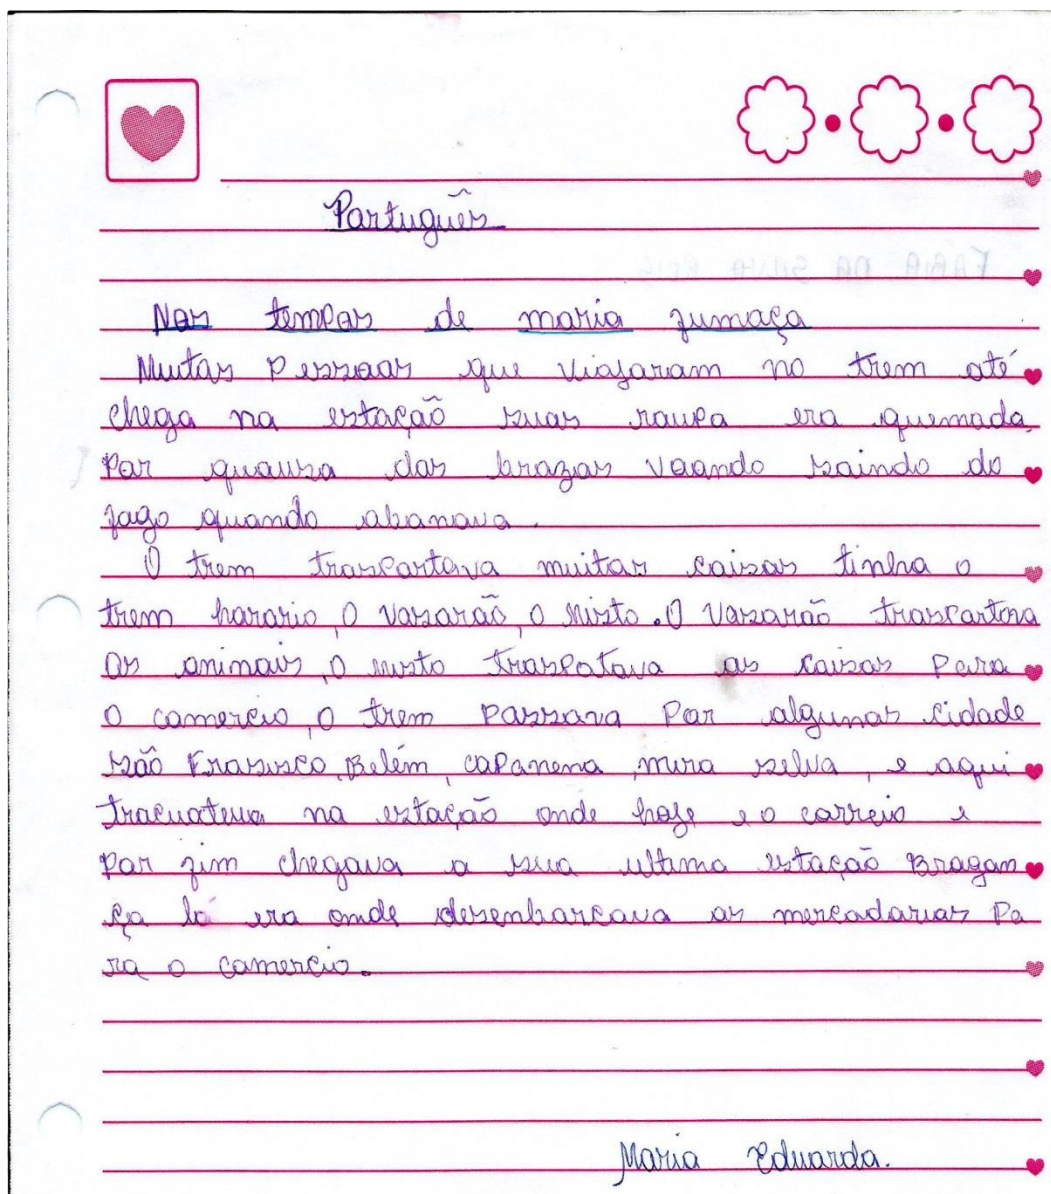 Português
Nos tempos de maria fumaça
Muitas Pessoas que viajaram no trem até
chega na estação suas roupa era quemada
Por quausa das brazas voando saindo do
fogo quando abanava.
O trem trasportava muitas coisas tinha o
trem horario, O vasorão, o Misto. O vasorão trasportava
os animais, o misto traspotava as coisas Para
o comercio, o trem passava Por algumas cidade
são Frasisco, Belém, caPanena, mira selva, e aqui
tracuateua na estação onde hoje e o correio e
por fim chegava a sua ultima estação Bragan
ça lá era onde desenbarcava as mercadarias Pa
ra o comercio.
Maria Eduarda.